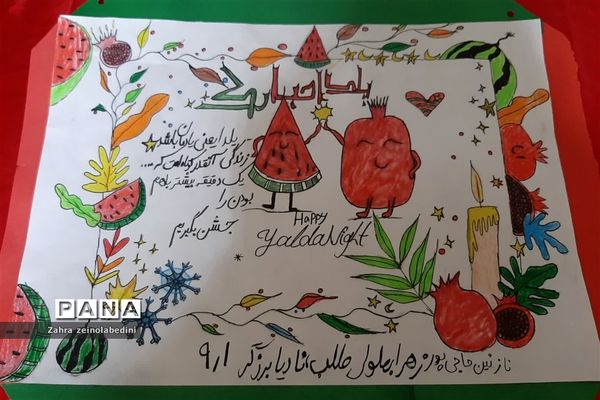 یلدا مبارک
یلدا یعنی یادمان باشد
زندگی آنقدر کوتاه است که ....
یک دقیقه بیشتر باهم
بودن را
جشن بگیریم
Happy
Yalda Night
نازنین حاجی پور زهرا بهلول طلب نادیا برزگر ۹/۱
PANA
Zahra zeinolabedini